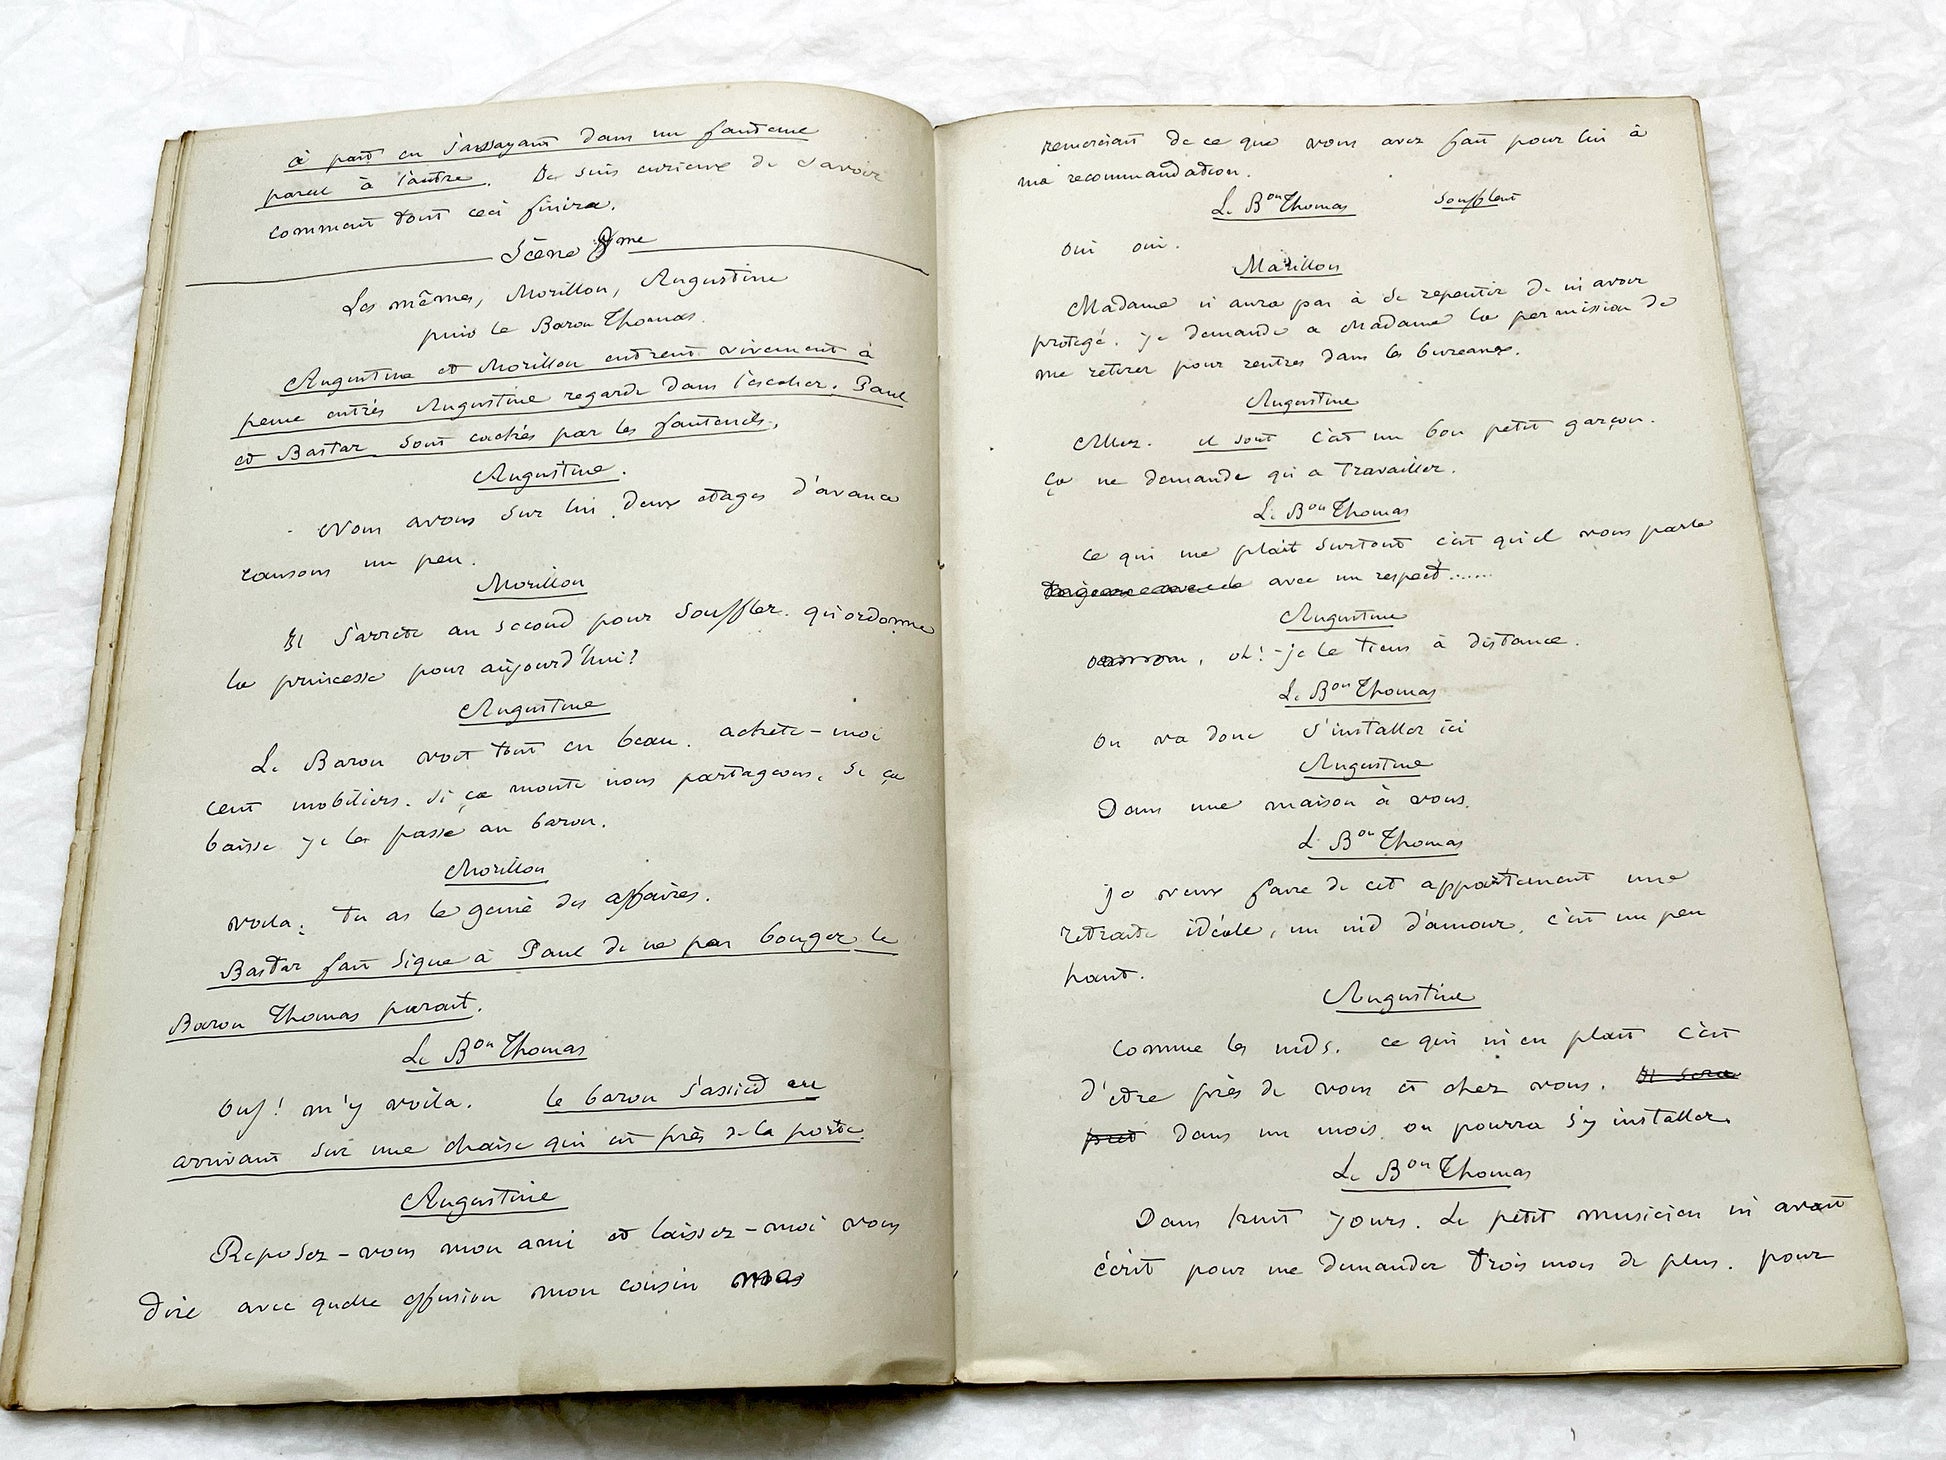 à part en s'assayant dans un fauteuil
pareil à l'autre. Je suis curieux de savoir
comment tout ceci finira.
Scène 9me
Les mêmes, Morillon, Augustine
puis le Baron Thomas.
Augustine et Morillon entrent vivement à
peine entrés Augustine regarde dans l'escalier. Paul
et Bastar sont cachés par les fauteuils.
Augustine.
Nous avons sur lui deux etages d'avance
causons un peu.
Morillon
Il s'arrète au second pour souffler. qu'ordonne
la princesse pour aujourd'hui?
Augustine
Le Baron voit tout en beau. achète-moi
cent mobiliers. si ça monte nous partageons. si ça
baisse je les passe au baron.
Morillon
voila. tu as le génie des affaires.
Bastar fait signe à Paul de ne pas bouger le
Baron Thomas parait.
Le Bon Thomas
Ouf! m'y voila. le baron s'assied en
arrivant sur une chaise qui est près de la porte.
Augustine
Reposez-vous mon ami et laissez-moi vous
dire avec quelle effusion mon cousin
remerciait de ce que vous avez fait pour lui à
ma recommandation.
Le Bon Thomas soufflant
oui oui.
Morillon
Madame n'aura pas à se repentir de m'avoir
protégé. je demande a Madame la permission de
me retirer pour rentrer dans les bureaux.
Augustine
Allez. il sort c'est un bon petit garçon.
ça ne demande qu'a travailler.
Le Bon Thomas
ce qui me plait surtout c'est qu'il vous parle
avec un respect......
Augustine
oh! je le tiens à distance.
Le Bon Thomas
On va donc s'installer ici
Augustine
Dans une maison à vous.
Le Bon Thomas
je veux faire de cet appartement une
retraite idéale, un nid d'amour. c'est un peu
haut.
Augustine
comme les nids. ce qui m'en plait c'est
d'etre près de vous et chez vous. Il sera
pret dans un mois on pourra s'y installer.
Le Bon Thomas
Dans huit jours. Le petit musicien m'avait
écrit pour me demander trois mois de plus. pour